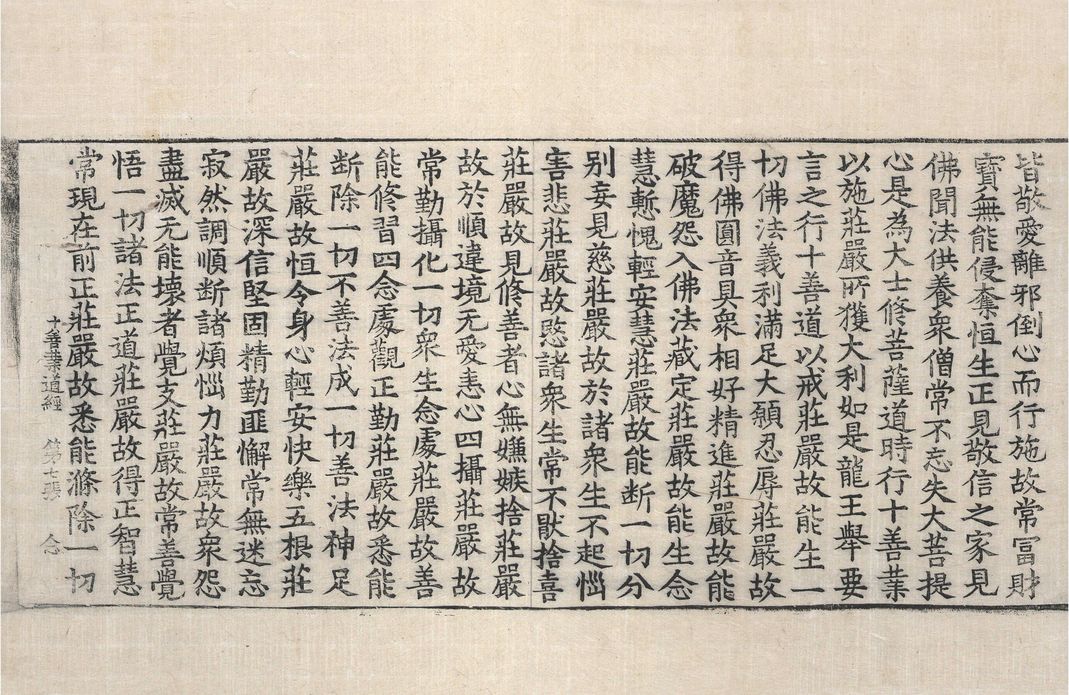 皆敬愛離邪倒心而行施故常冨財
寳無能侵奪恒生正見敬信之家見
佛聞法供養衆僧常不忘失大菩提
心是為大士修菩薩道時行十善業
以施莊嚴所獲大利如是龍王舉要
言之行十善道以戒莊嚴故能生一
切佛法義利滿足大願忍辱莊嚴故
得佛圓音具衆相好精進莊嚴故能
破魔怨入佛法藏定莊嚴故能生念
慧慙愧輕安慧莊嚴故能断一切分
别妄見慈莊嚴故於諸衆生不起惱
害悲莊嚴故愍諸衆生常不猒捨喜
莊嚴故見修善者心無嫌嫉捨莊嚴
故於順違境无愛恚心四攝莊嚴故
常勤攝化一切衆生念處莊嚴故善
能修習四念處觀正勤莊嚴故悉能
断除一切不善法成一切善法神足
莊嚴故恒令身心輕安快樂五根莊
嚴故深信堅固精勤匪懈常無迷忘
寂然調順断諸煩惱力莊嚴故衆怨
盡滅无能壊者覺支莊嚴故常善覺
悟一切諸法正道莊嚴故得正智慧
常現在前正莊嚴故悉能滌除一切
十善業道經 第七張 念